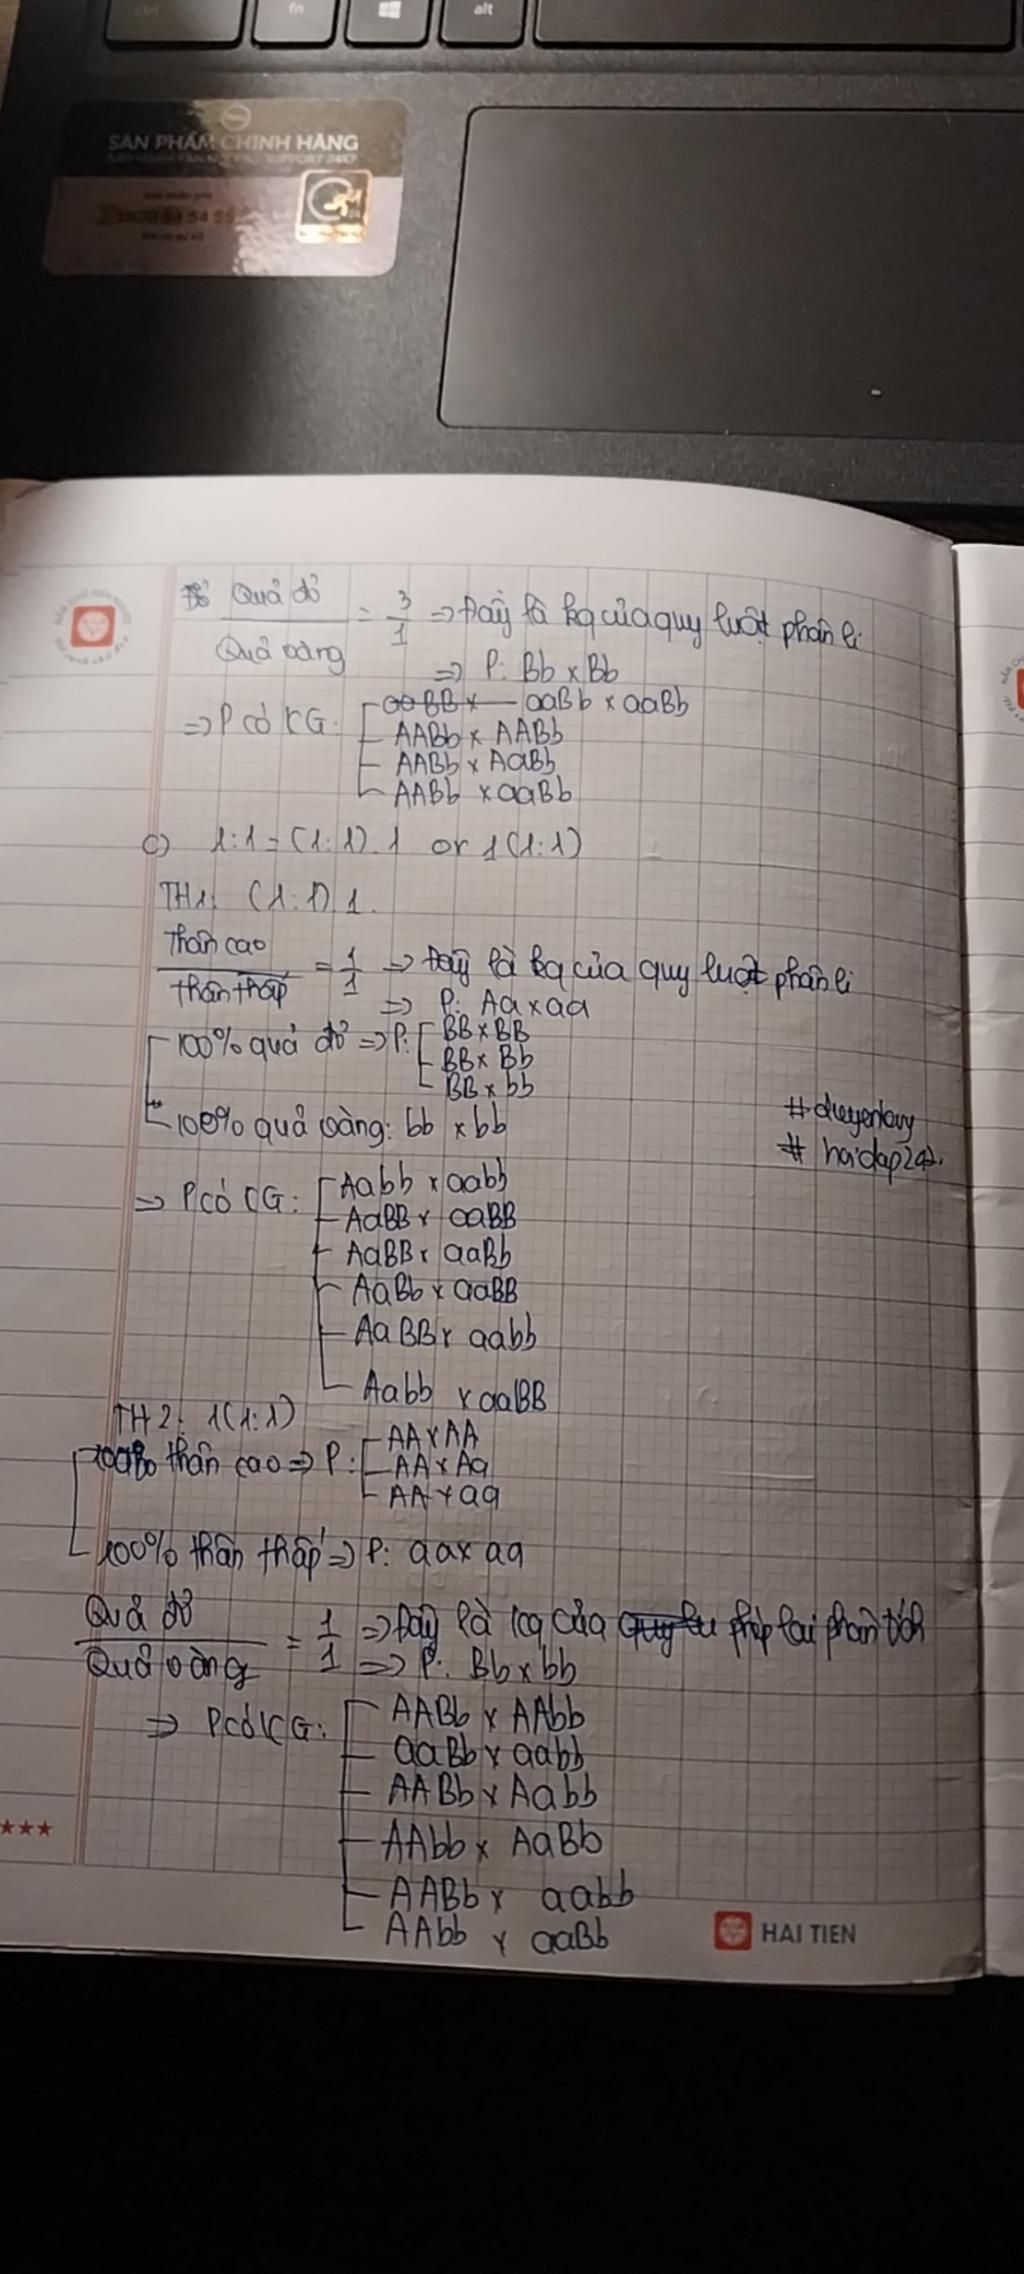 ctrl
fn
alt
SẢN PHẨM CHÍNH HÃNG
Quả đỏ
Quả vàng
= 3/1 => Đây là kq của quy luật phân li
=> P: Bb x Bb
=> P có KG: aaBB x aaBb x aaBb
AABb x AABb
AABb x AaBb
AABb x aaBb
c) 1:1 = (1:1).1 or 1(1:1)
TH1: (1:1).1.
Thân cao
thân thấp
= 1/1 => Đây là kq của quy luật phân li
=> P: Aa x aa
100% quả đỏ => P: BB x BB
BB x Bb
BB x bb
100% quả vàng: bb x bb
#duyenlovy
# hoidap247.
=> P có KG: Aabb x aabb
AaBB x aaBB
AaBB x aaBb
AaBb x aaBB
AaBB x aabb
Aabb x aaBB
TH2: 1(1:1)
100% thân cao => P: AA x AA
AA x Aa
AA x aa
100% thân thấp => P: aa x aa
Quả đỏ
Quả vàng
= 1/1 => Đây là kq của quy lu phép lai phân tích
=> P: Bb x bb
=> P có KG: AABb x AAbb
aaBb x aabb
AABb x Aabb
AAbb x AaBb
AABb x aabb
AAbb x aaBb
HAI TIEN